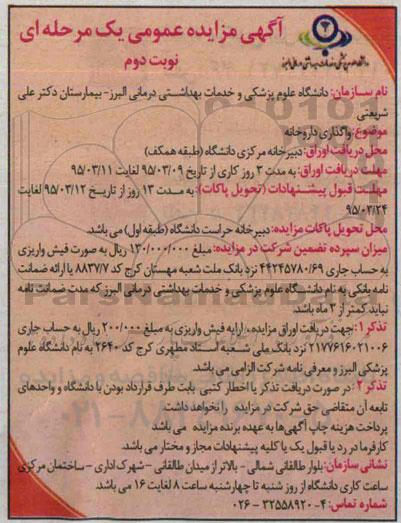 آگهی مزایده عمومی یک مرحله ای
نوبت دوم
نام سازمان: دانشگاه علوم پزشکی و خدمات بهداشتی درمانی البرز- بیمارستان دکتر علی
شریعتی
موضوع: واگذاری داروخانه
محل دریافت اوراق: دبیرخانه مرکزی دانشگاه (طبقه همکف)
مهلت دریافت اوراق: به مدت ۳ روز کاری از تاریخ ۹۵/۰۳/۰۹ لغایت ۹۵/۰۳/۱۱
مهلت قبول پیشنهادات (تحویل پاکات): به مدت ۱۳ روز از تاریخ ۹۵/۰۳/۱۲ لغایت
۹۵/۰۳/۲۴
محل تحویل پاکات مزایده: دبیرخانه حراست دانشگاه (طبقه اول) می باشد.
میزان سپرده تضمین شرکت در مزایده: مبلغ ۱۳۰/۰۰۰/۰۰۰ ریال به صورت فیش واریزی
به حساب جاری ۴۴۲۴۵۷۸۰/۶۹ نزد بانک ملت شعبه مهستان کرج کد ۸۸۳۷/۷ یا ارائه ضمانت
نامه بانکی به نام دانشگاه علوم پزشکی و خدمات بهداشتی درمانی البرز که مدت ضمانت نامه
نباید کمتر از ۳ ماه باشد.
تذکر ۱: جهت دریافت اوراق مزایده، ارایه فیش واریزی به مبلغ ۲۰۰/۰۰۰ ریال به حساب جاری
۲۱۷۷۶۱۶۰۲۱۰۰۶ نزد بانک ملی شعبه استاد مطهری کرج کد ۲۶۴۰ به نام دانشگاه علوم
پزشکی البرز و معرفی نامه شرکت الزامی می باشد.
تذکر ۲: در صورت دریافت تذکر یا اخطار کتبی بابت طرف قرارداد بودن با دانشگاه و واحدهای
تابعه آن متقاضی حق شرکت در مزایده را نخواهد داشت.
پرداخت هزینه چاپ آگهی‌ها به عهده برنده مزایده می باشد
کارفرما در رد یا قبول یک یا کلیه پیشنهادات مجاز و مختار می باشد.
نشانی سازمان: بلوار طالقانی شمالی - بالاتر از میدان طالقانی - شهرک اداری - ساختمان مرکزی
ساعت کاری دانشگاه از روز شنبه تا چهارشنبه ساعت ۸ لغایت ۱۶ می باشد.
شماره تماس: ۴-۳۲۵۵۸۹۲۰ - ۰۲۶